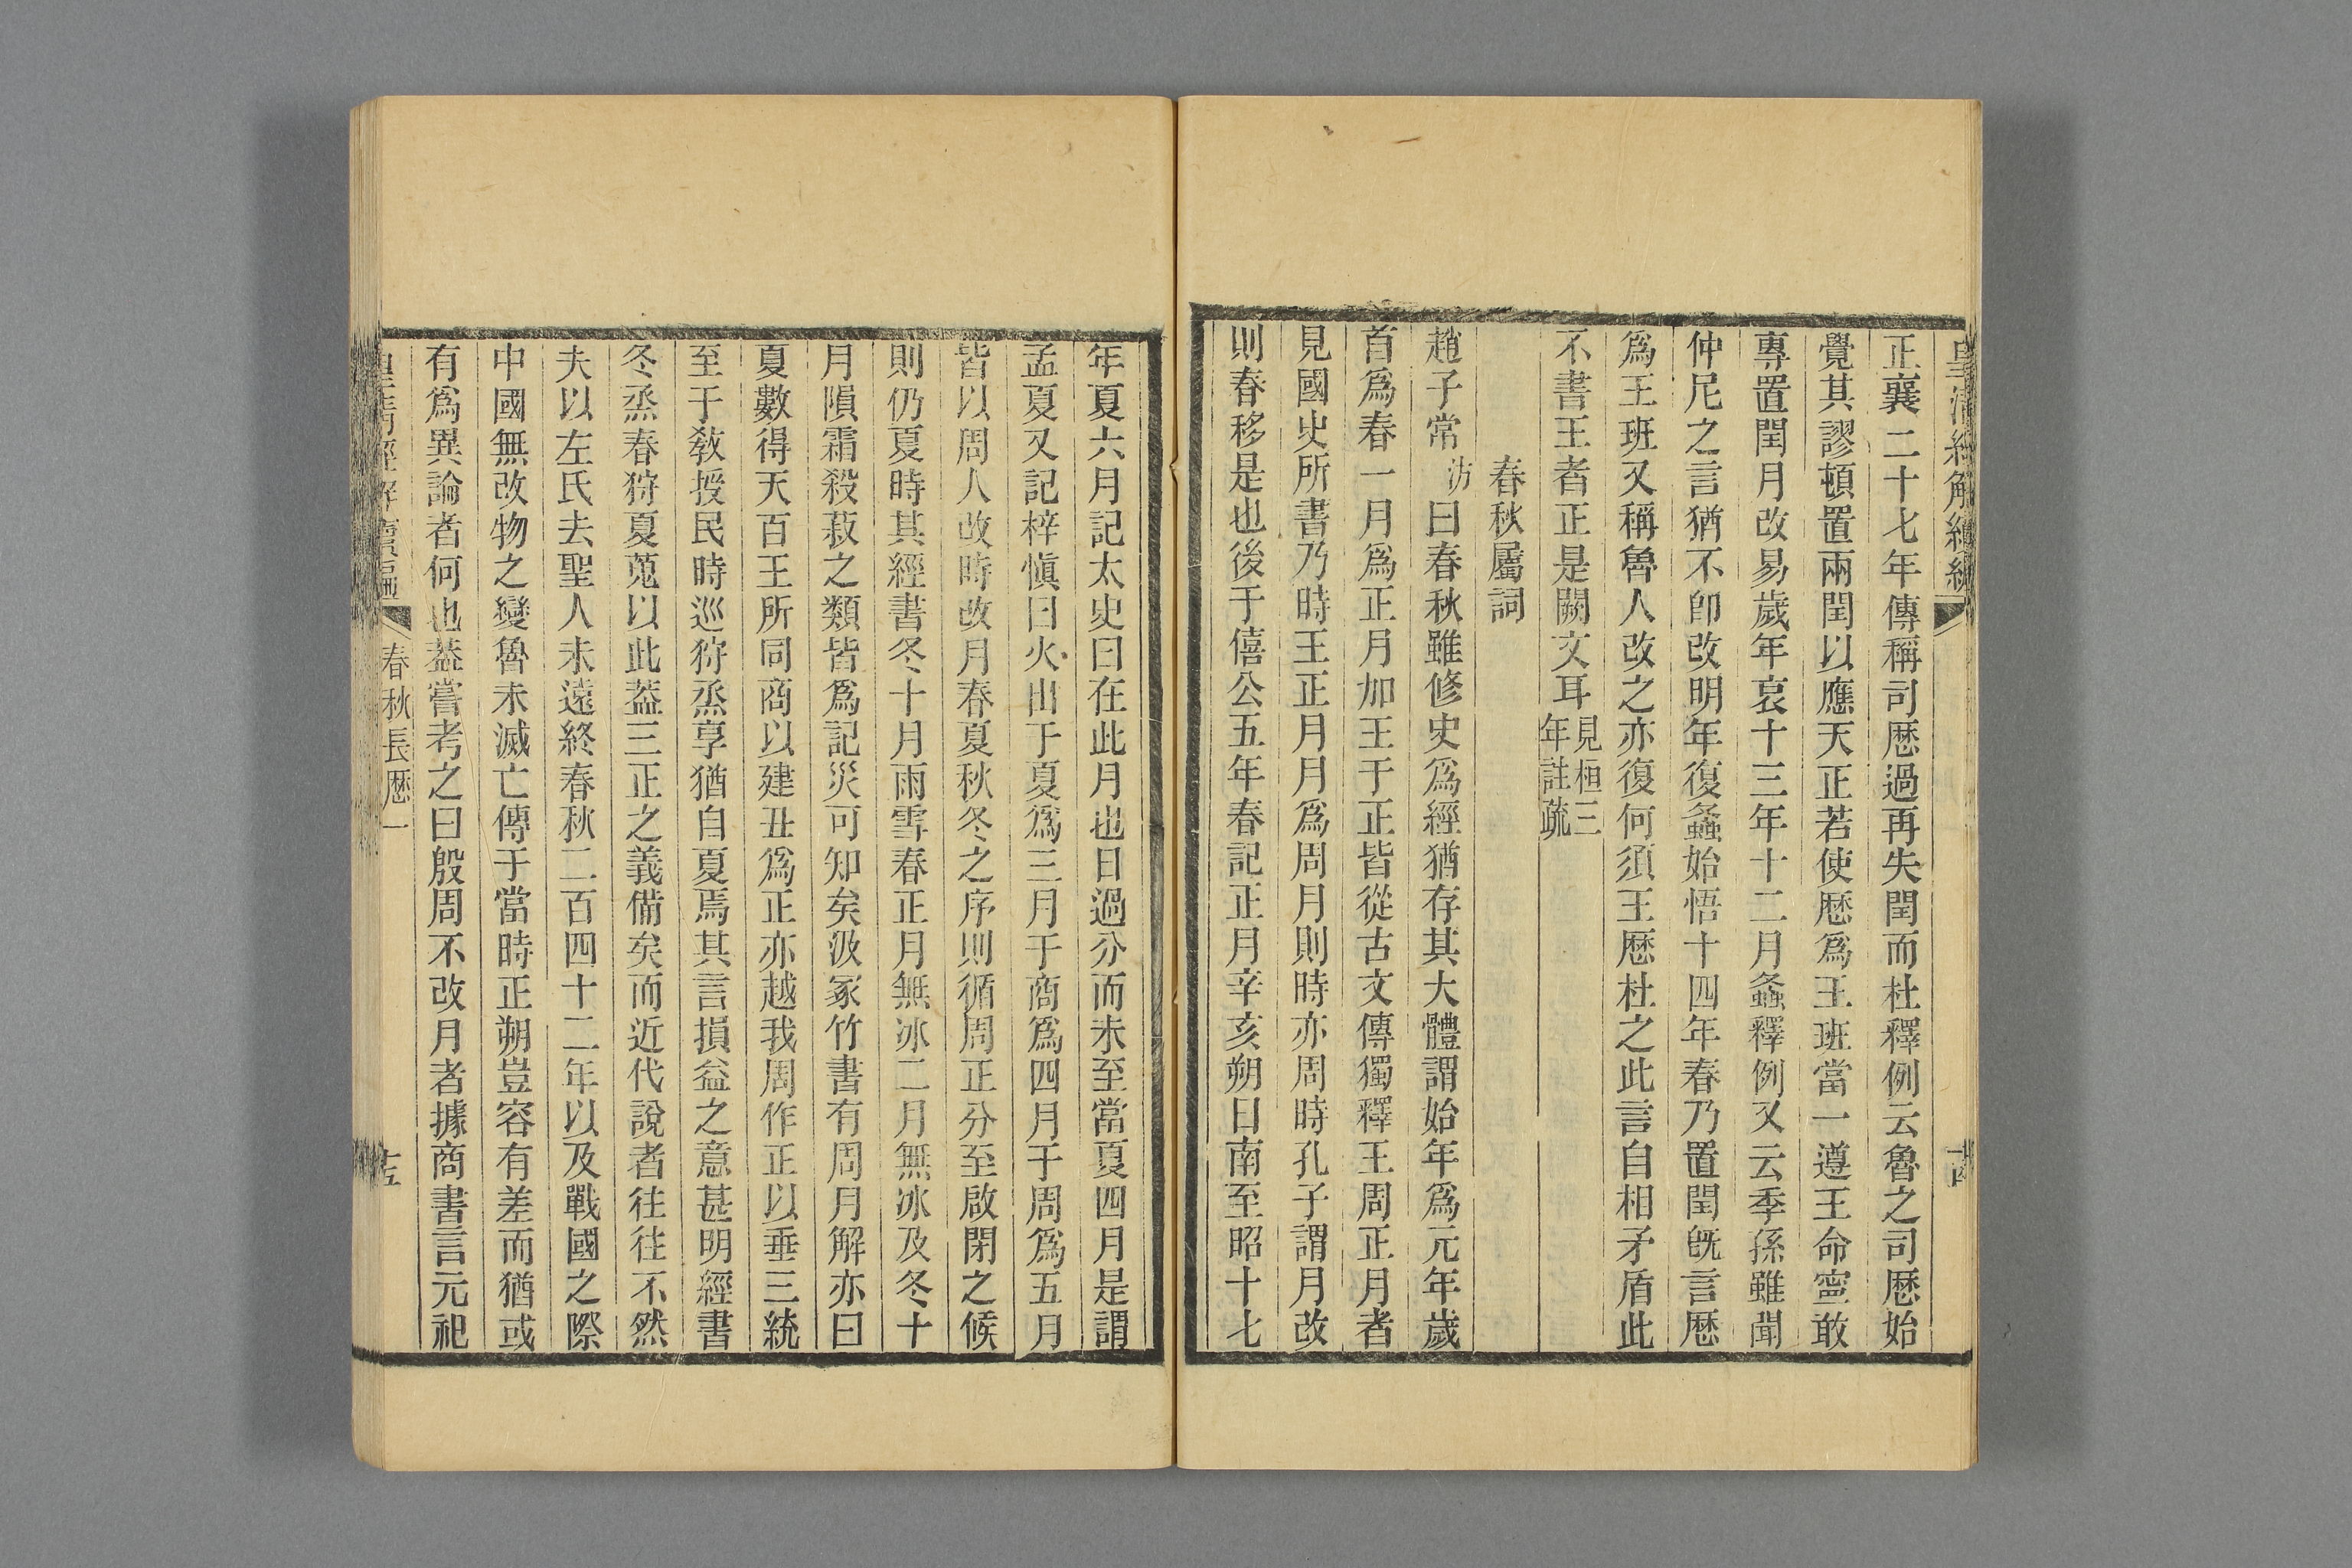 皇清經解續編
十四
正襄二十七年傳稱司厯過再失閏而杜釋例云魯之司厯始
覺其謬頓置兩閏以應天正若使厯爲王班當一遵王命寧敢
專置閏月改易歲年哀十三年十二月螽釋例又云季孫雖聞
仲尼之言猶不卽改明年復螽始悟十四年春乃置閏旣言厯
爲王班又稱魯人改之亦復何須王厯杜之此言自相矛盾此
不書王者正是闕文耳見桓三年註疏
春秋屬詞
趙子常汸曰春秋雖修史爲經猶存其大體謂始年爲元年歲
首爲春一月爲正月加王于正皆從古文傳獨釋王周正月者
見國史所書乃時王正月月爲周月則時亦周時孔子謂月改
則春移是也後于僖公五年春記正月辛亥朔日南至昭十七
年夏六月記太史曰在此月也日過分而未至當夏四月是謂
孟夏又記梓慎曰火出于夏爲三月于商爲四月于周爲五月
皆以周人改時改月春夏秋冬之序則循周正分至啟閉之候
則仍夏時其經書冬十月雨雪春正月無冰二月無冰及冬十
月隕霜殺菽之類皆爲記災可知矣汲冢竹書有周月解亦曰
夏數得天百王所同商以建丑爲正亦越我周作正以垂三統
至于敎授民時巡狩烝享猶自夏焉其言損益之意甚明經書
冬烝春狩夏蒐以此葢三正之義備矣而近代說者往往不然
夫以左氏去聖人未遠終春秋二百四十二年以及戰國之際
中國無改物之變魯未滅亡傳于當時正朔豈容有差而猶或
有爲異論者何也葢嘗考之曰殷周不改月者據商書言元祀
皇清經解續編
春秋長厯一
十五